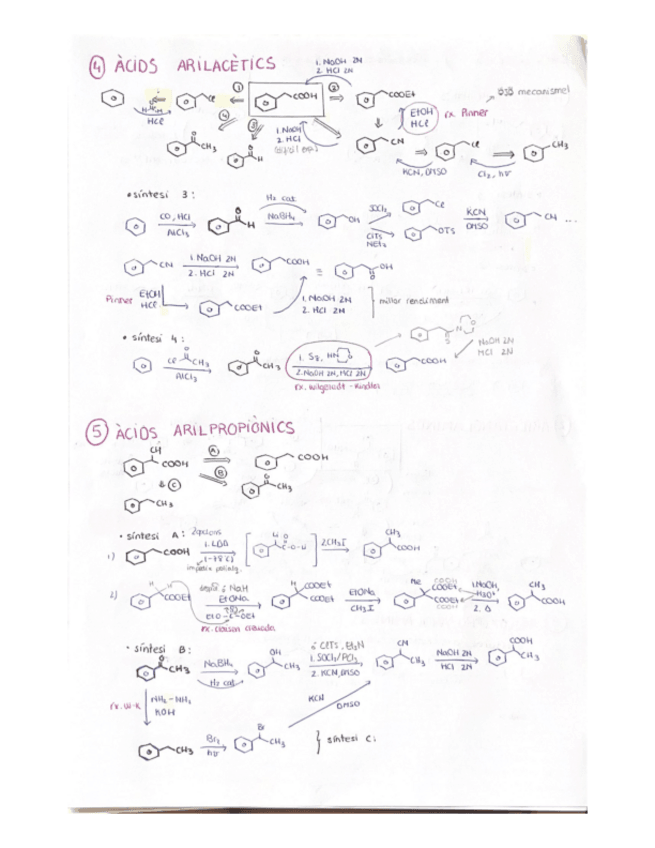 4 ÀCIDS ARILACÈTICS
1. NaOH 2N
2. HCl 2N
1 COOH 2 COOEt
HCl
EtOH
HCl
rx. Pinner
mecanisme!
4 3
1. NaOH
2. HCl
CH3
H
CN
Cl
CH3
KCN, DMSO
Cl2, hν
• síntesi 3:
CO, HCl
AlCl3
H
H2 cat.
NaBH4
OH
SOCl2
Cl
ClTs
NEt3
OTs
KCN
DMSO
CN ...
CN
1. NaOH 2N
2. HCl 2N
COOH
=
OH
Pinner
EtOH
HCl
COOEt
1. NaOH 2N
2. HCl 2N
millor rendiment
• síntesi 4:
Cl CH3
AlCl3
CH3
1. S8, HN O
2. NaOH 2N, HCl 2N
COOH
N O
S
NaOH 2N
HCl 2N
rx. Wilgerodt - Kindler
5 ÀCIDS ARILPROPIÒNICS
COOH
A
COOH
B
C
CH3
CH3
• síntesi A: 2 opcions
1) COOH
1. LDA
(-78ºC)
2. CH3I
CH3
COOH
2) H H
COOEt
NaH
EtONa
EtO-C-OEt
rx. Claisen creuada
H COOEt
COOEt
EtONa
CH3I
Me COOEt
COOEt
1. NaOH,
H3O+
2. Δ
CH3
COOH
• síntesi B:
CH3
NaBH4
H2 cat
OH
CH3
ó ClTs, Et3N
1. SOCl2/PCl3
2. KCN, DMSO
CN
CH3
NaOH 2N
HCl 2N
COOH
CH3
rx. W-K
NH2-NH2
KOH
KCN
DMSO
CH3
Br2
hν
Br
CH3
síntesi C: